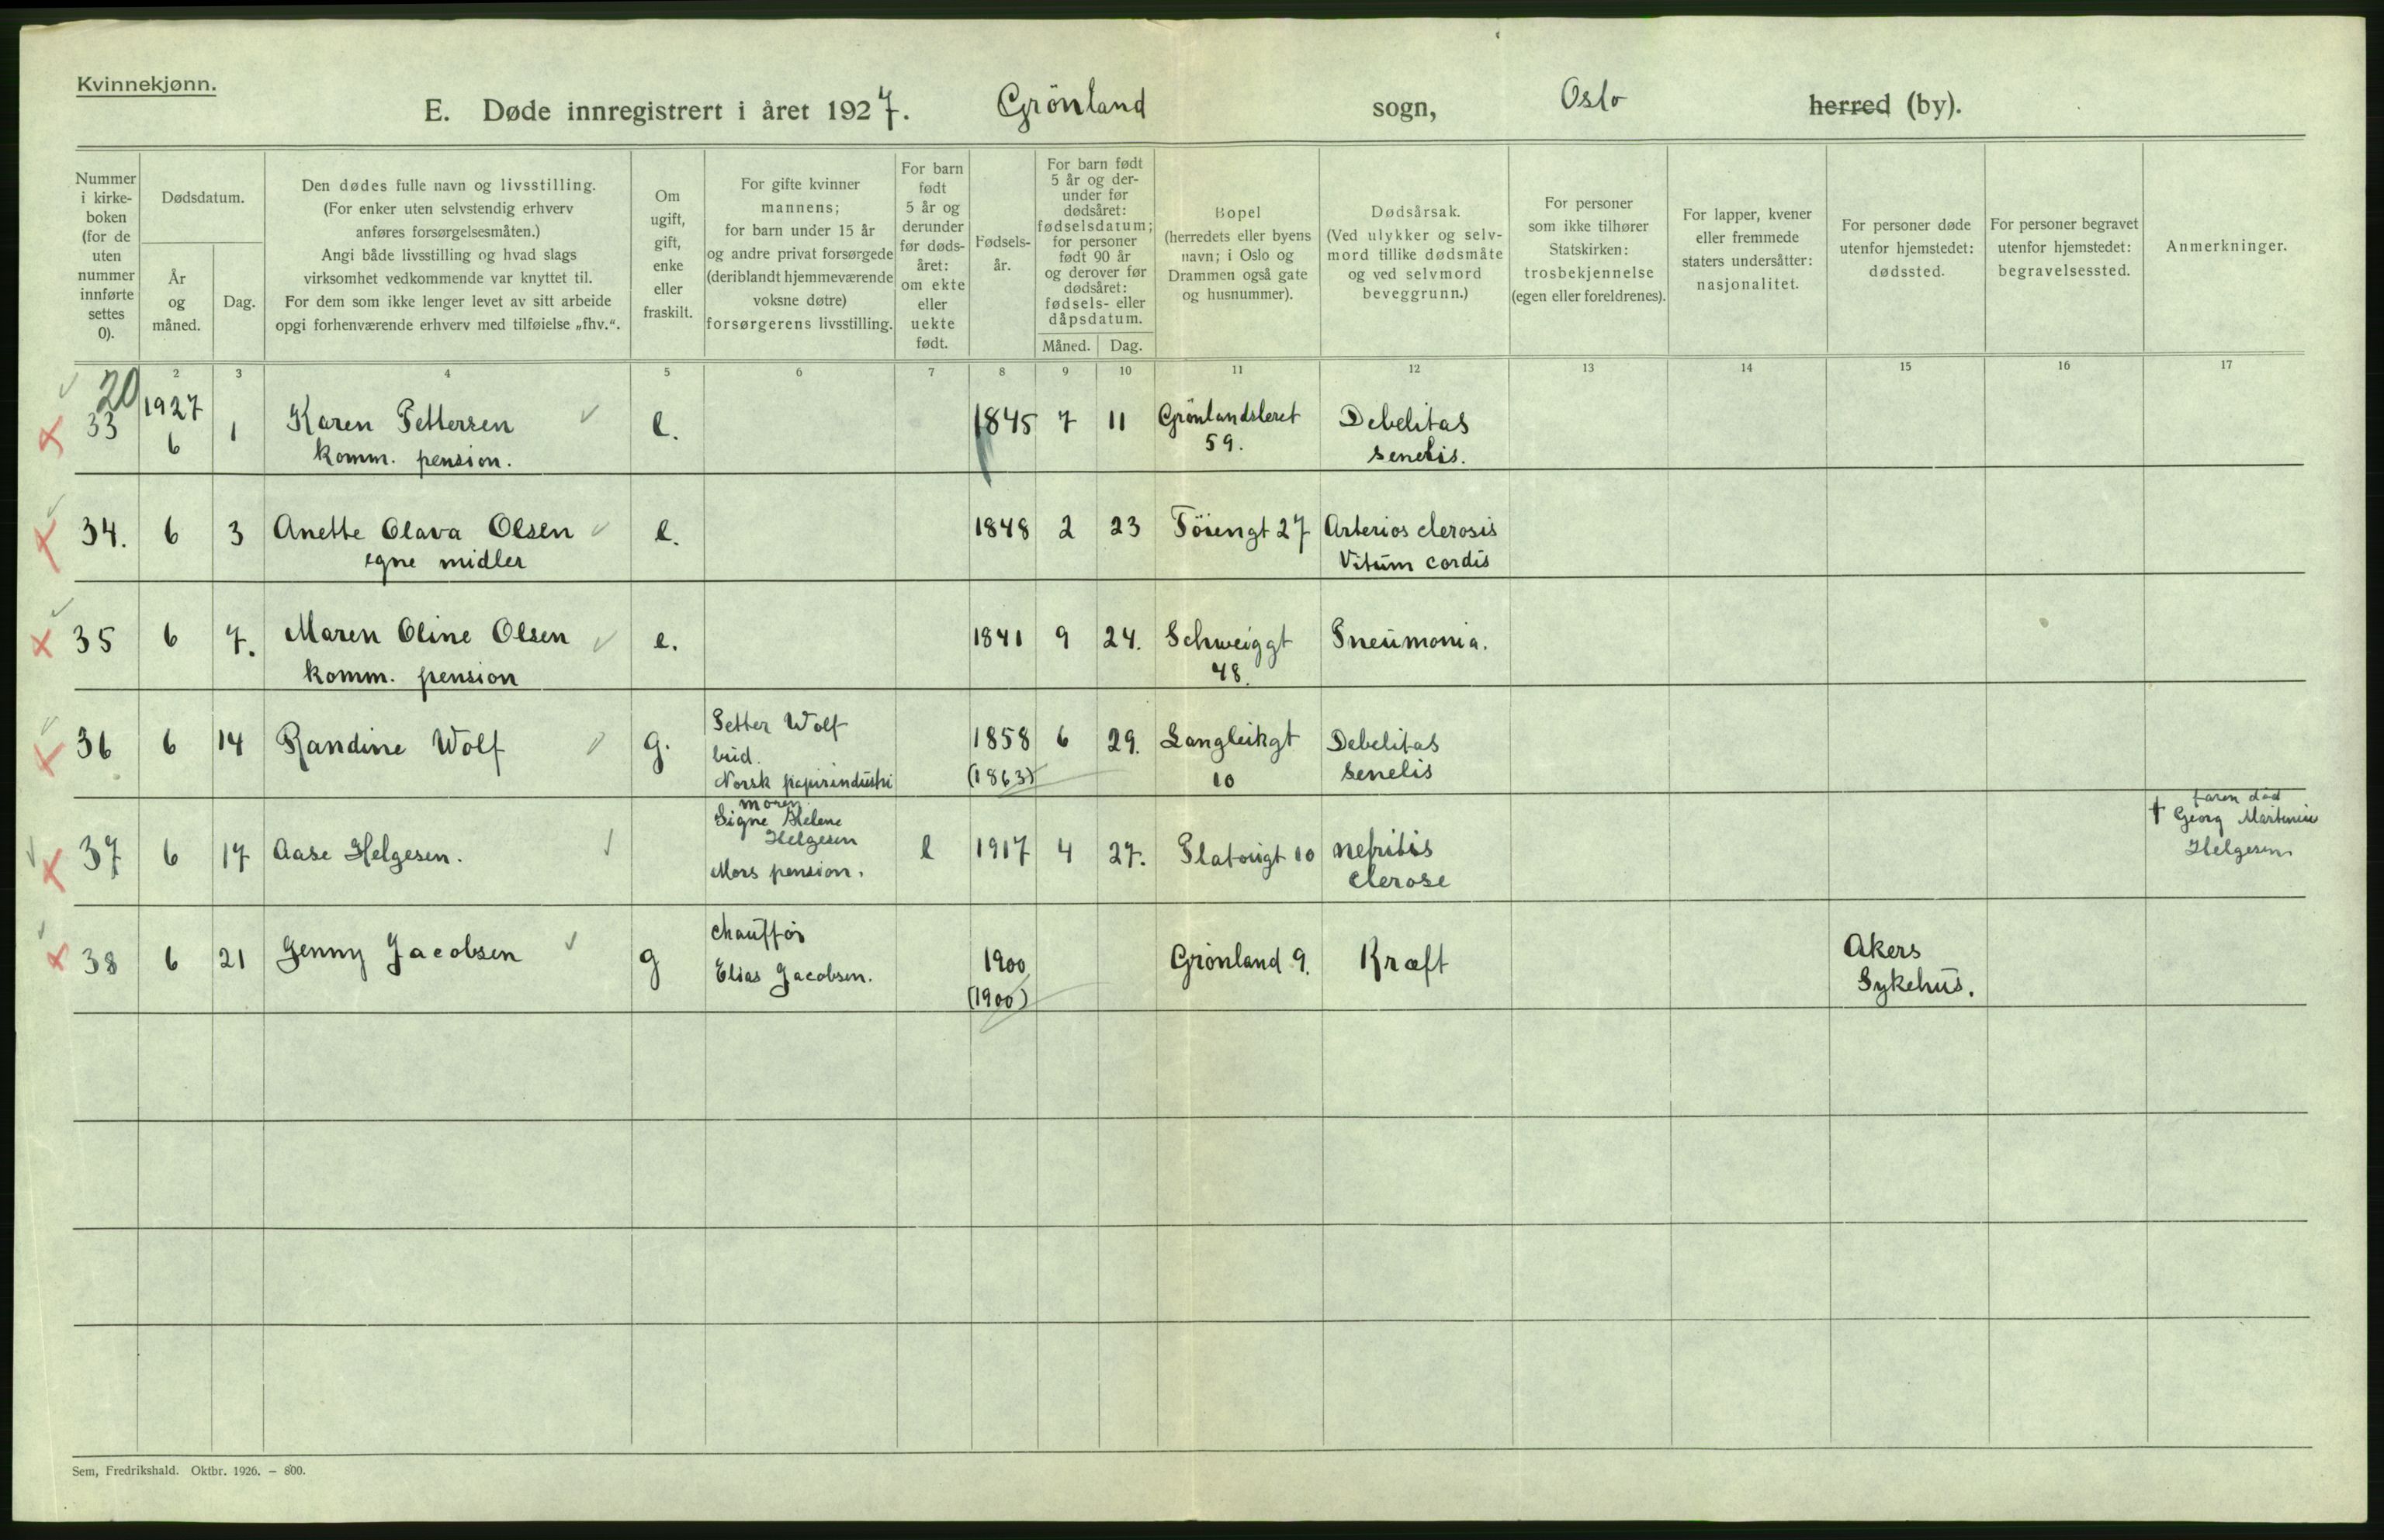 Kvinnekjønn.
E. Døde innregistrert i året 1927. Grönland sogn, Oslo herred (by).
Nummer
i kirke-
boken
(for de
uten
nummer
innførte
settes
0).
Dødsdatum.
År
og
måned.
Dag.
Den dødes fulle navn og livsstilling.
(For enker uten selvstendig erhverv
anføres forsørgelsesmåten.)
Angi både livsstilling og hvad slags
virksomhet vedkommende var knyttet til.
For dem som ikke lenger levet av sitt arbeide
opgi forhenværende erhverv med tilføielse „fhv.“.
Om
ugift,
gift,
enke
eller
fraskilt.
For gifte kvinner
mannens;
for barn under 15 år
og andre privat forsørgede
(deriblandt hjemmeværende
voksne døtre)
forsørgerens livsstilling.
For barn
født
5 år og
derunder
før døds-
året:
om ekte
eller
uekte
født.
Fødsels-
år.
For barn født
5 år og der-
under før
dødsåret:
fødselsdatum;
for personer
født 90 år
og derover før
dødsåret:
fødsels- eller
dåpsdatum.
Måned. Dag.
Bopel
(herredets eller byens
navn; i Oslo og
Drammen også gate
og husnummer).
Dødsårsak.
(Ved ulykker og selv-
mord tillike dødsmåte
og ved selvmord
beveggrunn.)
For personer
som ikke tilhører
Statskirken:
trosbekjennelse
(egen eller foreldrenes).
For lapper, kvener
eller fremmede
staters undersåtter:
nasjonalitet.
For personer døde
utenfor hjemstedet:
dødssted.
For personer begravet
utenfor hjemstedet:
begravelsessted.
Anmerkninger.
2 3 4 5 6 7 8 9 10 11 12 13 14 15 16 17
20
33 1927 6 1 Karen Pettersen e. 1845 7 11 Grönlandsleret Debelitas
komm. pension. 59. senelis.
34. 6 3 Anette Olava Olsen e. 1848 2 23 Töiengt 27 Arterios clerosis
egne midler Vitum cordis
35 6 7. Maren Oline Olsen e. 1841 9 24. Schweiggt Pneumonia.
komm. pension 48.
36 6 14 Randine Wolf g. Petter Wolf 1858 6 29. Langleikgt Debelitas
bud. (1863) 10 senelis
Norsk papirindustri
37 6 17 Aase Helgesen. moren e 1917 4 27. Platougt 10 nefritis † faren död
Signe Helene clerose Georg Martinius
Helgesen Helgesen
Mors pension.
38 6 21 Jenny Jacobsen g chaufför 1900 Grönland 9. Kræft Akers
Elias Jacobsen. (1900) Sykehus.
Sem, Fredrikshald. Oktbr. 1926. – 800.